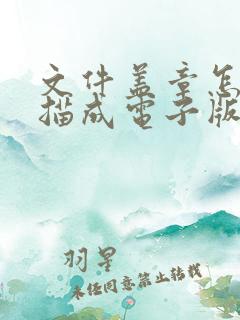 文件盖章怎
描成電子版
羽星
未经同意禁止转载